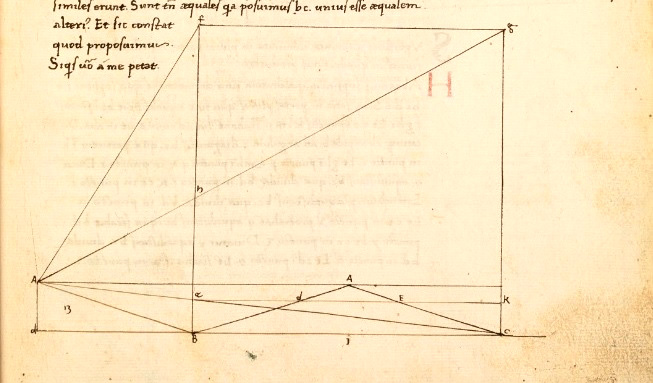 similes erunt. Sunt eñ æquales qa posuimus b c. unius esse æqualem
alteri? Et sic constat
quod proposuimus.
Siqs uõ a me petat
f
g
H
h
A
A
B
e
d
E
K
d
B
J
C